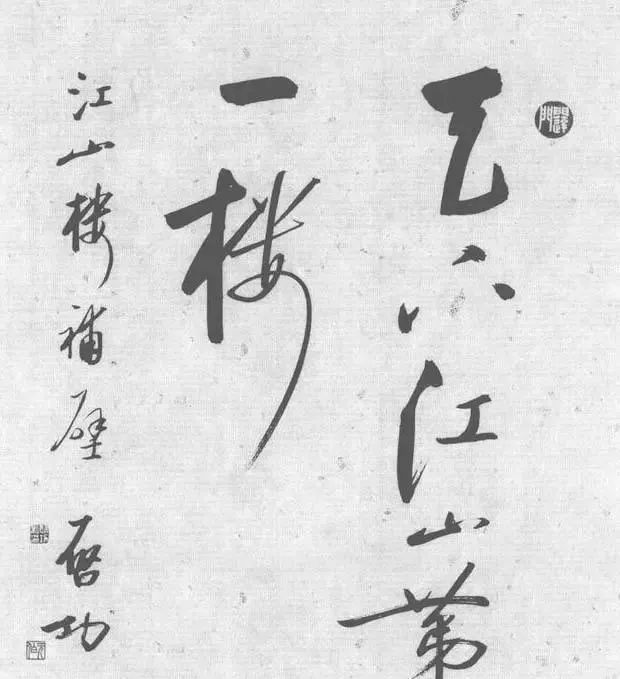 天下江山第
一楼
江山楼補壁
启功